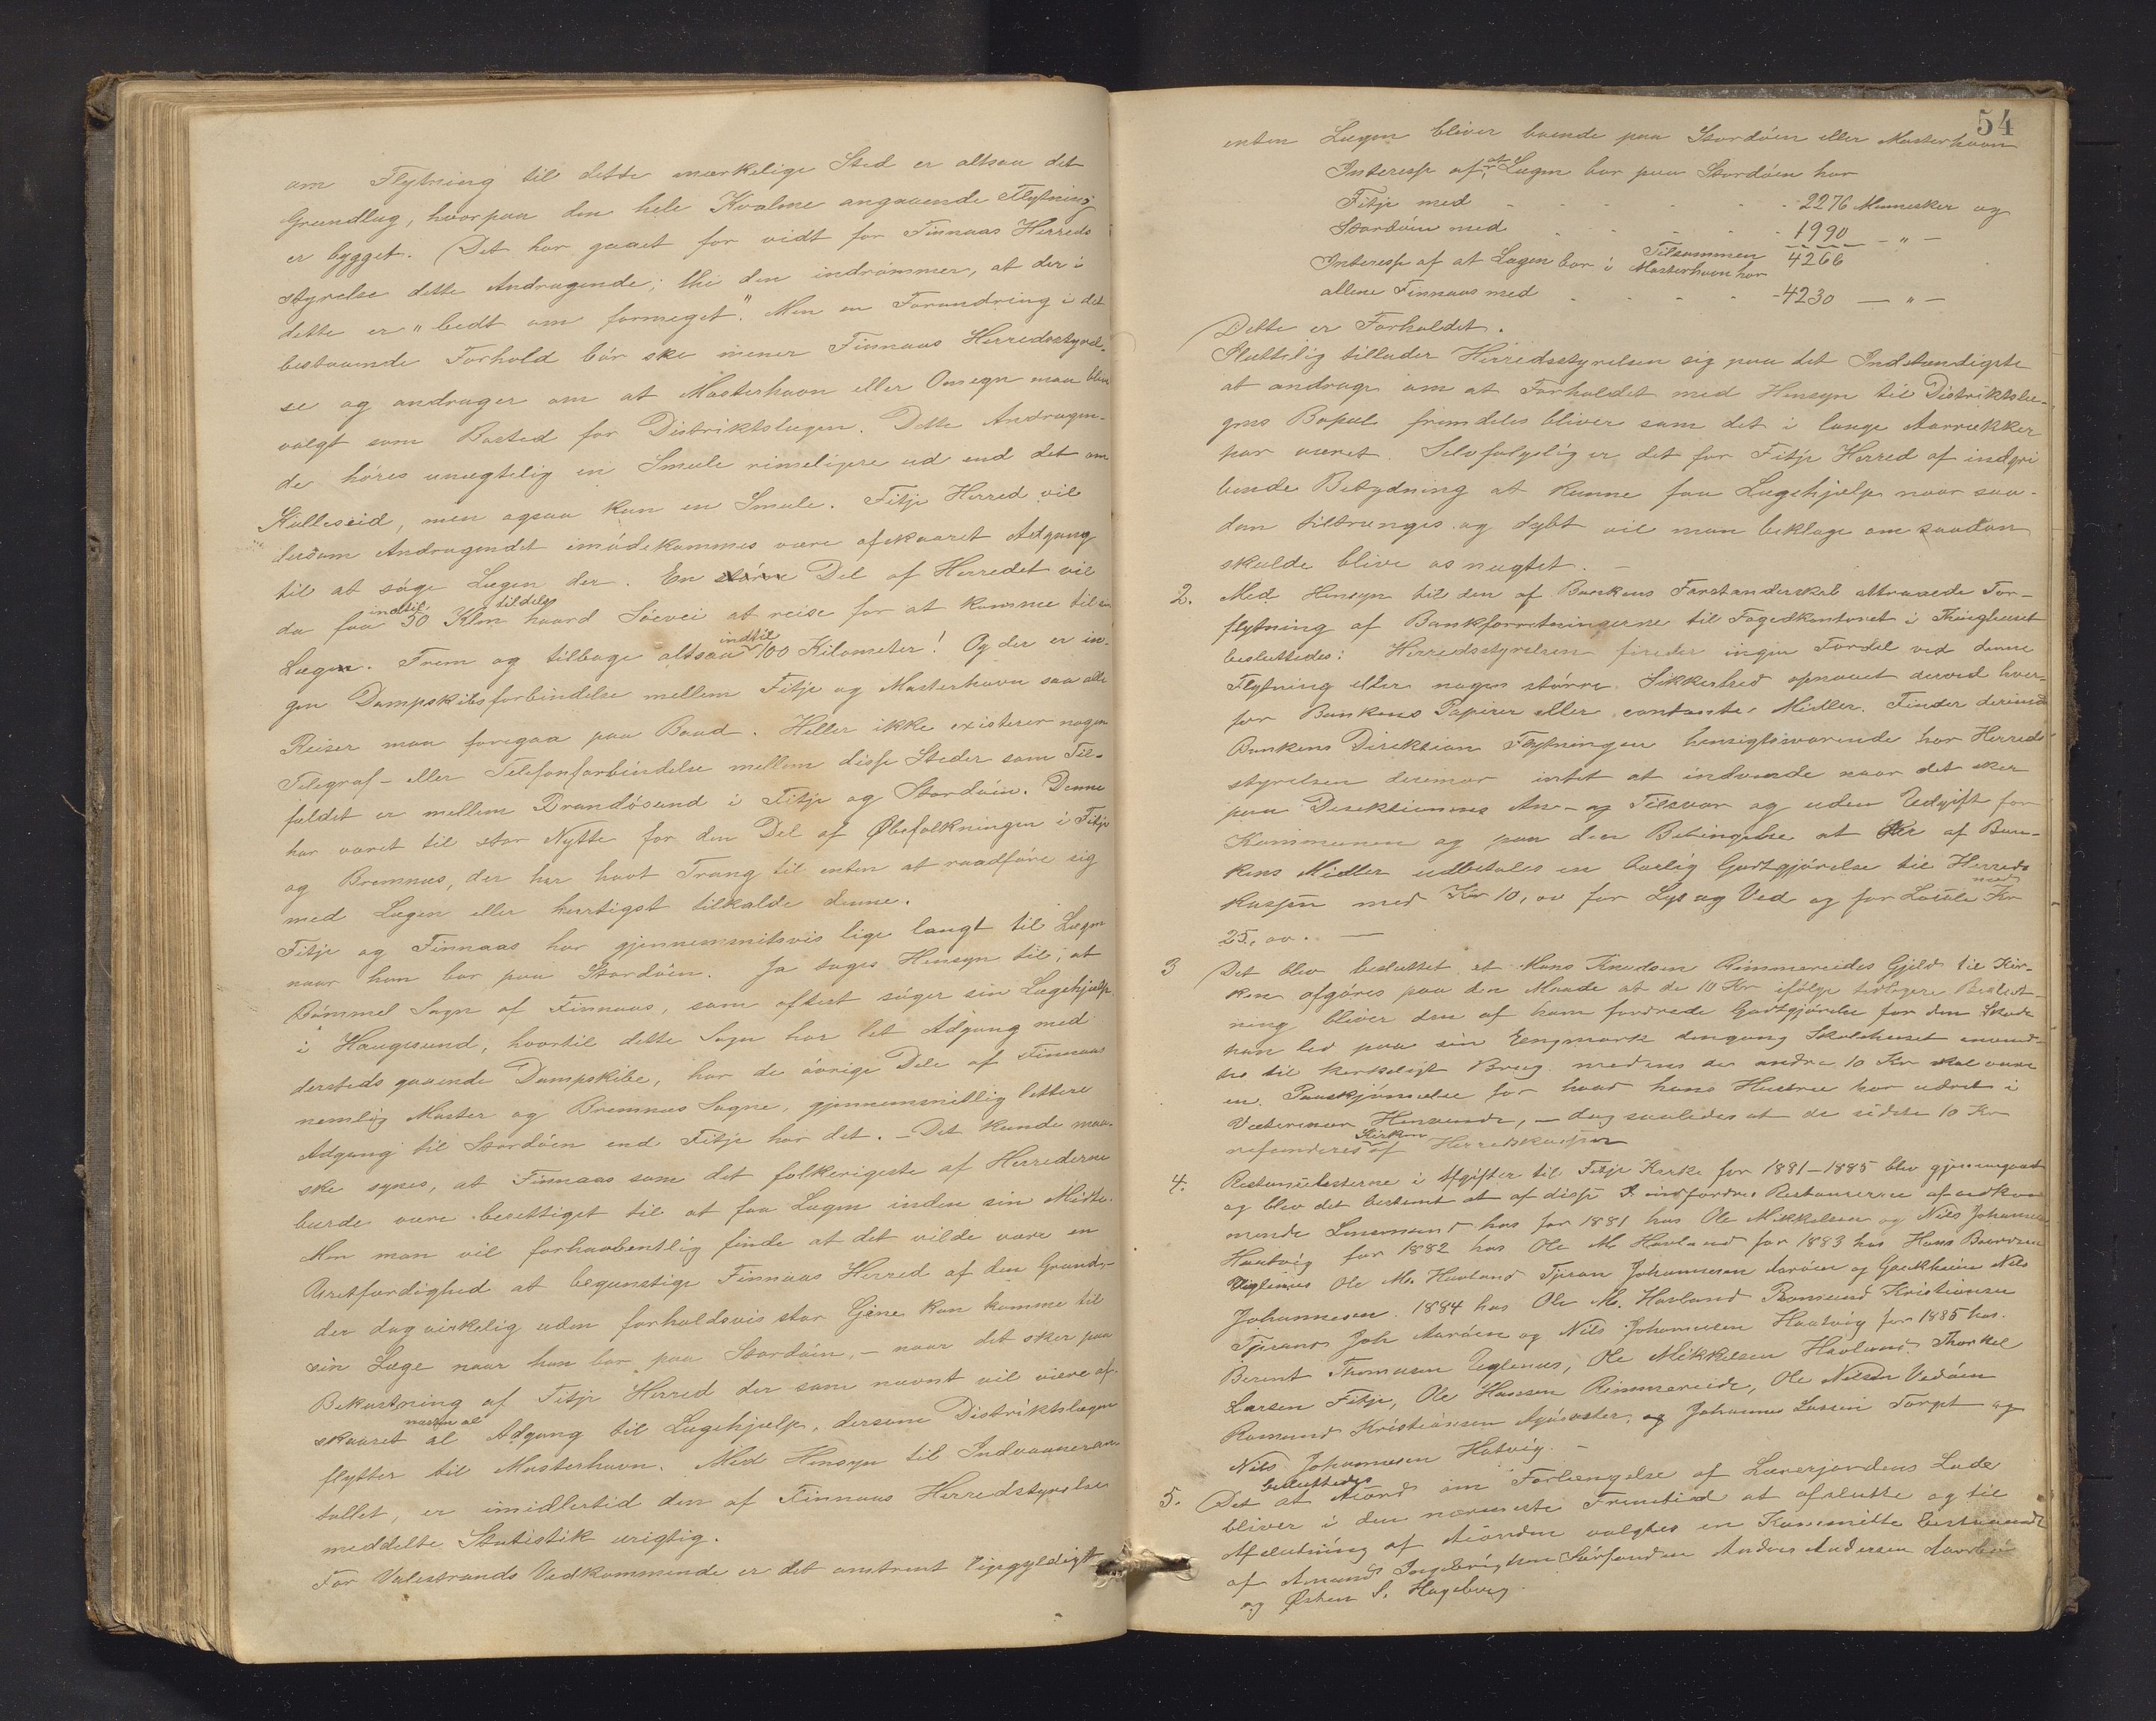 om Flytning til dette mærkelige Sted er altsaa det
Grundlag, hvorpaa den hele Kvalme angaaende Flytning
er bygget. Det har gaaet for vidt for Finnaas Herreds
styrelse dette Andragende; thi den indrømmer, at der i
dette er "bedt om formeget". Men en Forandring i det
bestaaende Forhold bør ske mener Finnaas Herredsstyrel-
se og andrager om at Mosterhavn eller Omegn maa blive
valgt som Bosted for Distriktslægen. Dette Andragen-
de høres unægtelig en Smule rimeligere ud end det om
Kulleseid, men ogsaa kun en Smule. Fitje Herred vil
ledsom Andragendet imødekommes være afskaaret Adgang
til at søge Lægen der. En større Del af Herredet vil
da faa indtil 50 Klm tildels haard Søevei at reise for at komme til
Lægen. Frem og tilbage altsaa indtil 100 Kilometer! Og der er in-
gen Dampskibsforbindelse mellem Fitje og Mosterhavn saa alle
Reiser maa foregaa paa Baad. Heller ikke existerer nogen
Telegraf- eller Telefonforbindelse mellem disse Steder som Til-
fældet er mellem Brandøsund i Fitje og Stordøen. Denne
har været til stor Nytte for den Del af Øbefolkningen i Fitje
og Bremnæs, der har havt Trang til enten at raadføre sig
med Lægen eller hurtigst tilkalde denne.
Fitje og Finnaas har gjennemsnitsvis lige langt til Lægen
naar han bor paa Stordøen. Ja tages Hensyn til, at
Bømmel Sogn af Finnaas, som oftest søger sin Lægehjælp
i Haugesund, hvortil dette Sogn har let Adgang med
dersteds gaaende Dampskibe, har de øvrige Dele af Finnaas
nemlig Moster og Bremnæs Sogne, gjennemsnitlig lettere
Adgang til Stordøen end Fitje har det. – Det kunde maa-
ske synes, at Finnaas som det folkerigeste af Herrederne
burde være berettiget til at faa Lægen inden sin Midte.
Men man vil forhaabentlig finde at det vilde være en
Uretfærdighed at begunstige Finnaas Herred af den Grund –
der dog virkelig uden forholdsvis stor Gjene kan komme til
sin Læge naar han bor paa Stordøen, – naar det sker paa
Bekostning af Fitje Herred der som nævnt vil være af-
skaaret næsten al Adgang til Lægehjælp, dersom Distriktslægen
flytter til Mosterhavn. Med Hensyn til Indvaaneran-
tallet, er imidlertid den af Finnaas Herredsstyrelse
meddelte Statistik urigtig.
For Valestrands Vedkommende er det omtrent ligegyldigt
54
enten Lægen bliver boende paa Stordøen eller Mosterhavn
Interesse af at Lægen bor paa Stordøen har
Fitje med - - - - - 2276 Mennesker og
Stordøen med - - - - - 1990 - " -
Tilsammen 4266
Interesse af at Lægen bor i Mosterhavn har
allene Finnaas med - - - - - 4230 — " —
Dette er Forholdet.
Sluttelig tillader Herredsstyrelsen sig paa det Indstændigste
at andrage om at Forholdet med Hensyn til Distriktslæ-
gens Bopæl fremdeles bliver som det i lange Aarrækker
har været. Selvfølgelig er det for Fitje Herred af indgri
bende Betydning at kunne faa Lægehjælp naar saa-
dan tiltrænges og dybt vil man beklage om saadan
skulde blive os nægtet. –
2. Med Hensyn til den af Bankens Forstanderskab attraaede For-
flytning af Bankforretningerne til Fogedkontoret i Thinghuset
besluttedes: Herredsstyrelsen finder ingen Fordel ved denne
Flytning eller nogen større Sikkerhed opnaaet derved hver-
for Bankens Papirer eller contante Midler. Finder derimod
Bankens Direktion Flytningen hensigtsvarende har Herreds
styrelsen derimor intet at indvende naar det sker
paa Direktionens An- og Tilsvar og uden Udgift for
Kommunen og paa den Betingelse at der af Ban-
kens Midler udbetales en aarlig Godtgjørelse til Herreds
kassen med Kr 10,00 for Lys og Ved og for Locale med Kr
25,00. —
3 Det blev besluttet at Mons Knudsen Rimmereides Gjeld til Kir-
ken afgøres paa den Maade at de 10 Kr ifølge tidligere Beslut-
ning bliver den af ham fordrede Godtgjørelse for den Skade
han led paa sin Engmark dengang Skolehuset anvend-
tes til kirkeligt Brug medens de andre 10 Kr skal være
en Paaskjønnelse for hvad hans Hustru har udret i
Henseende, – dog saaledes at de sidste 10 Kr
refunderes Kirken af Herredskassen
4. Restancelisterne i Afgifter til Fitje Kirke for 1881–1885 blev gjennemgaaet
og blev det bestemt at af disse indfordres Restancerne af vedkom
mende Lensmand hos for 1881 hos Ole Mikkelsen og Nils Johannesen
Haatvig for 1882 hos Ole M. Havland for 1883 hos Hans
Vuglenes Ole M. Havland Tjeran Johannesen Aarøen og Nils
Johannesen. 1884 hos Ole M. Havland Romund Kristiansen
Tjerand Joh Aarøen og Nils Johannesen Haatvig for 1885 hos.
Berent Thomasen Uglenæs, Ole Mikkelsen Havland, Thorkel
Larsen Fitje, Ole Hansen Rimmereide, Ole Nilsen Vedøen
Romund Kristiansen og Johannes Lassen Torget og
Nils Johannesen Hatvig. –
5. Det besluttedes at Akord om Forlængelse af Lærerjordens Lade
bliver i den nærmeste Fremtid at afslutte og til
Afslutning af Akorden valgtes en Kommitte bestaaende
af Amund Ingebrigtsen Sørfonden Anders Andersen Aarbø
og Østen S. Hageberg.